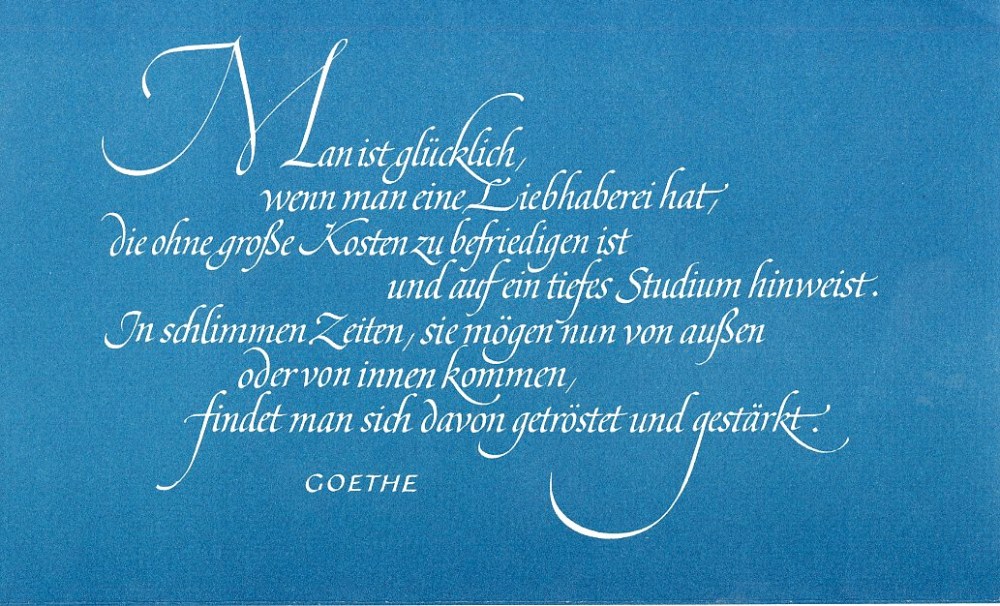 Man ist glücklich,
wenn man eine Liebhaberei hat,
die ohne große Kosten zu befriedigen ist
und auf ein tiefes Studium hinweist.
In schlimmen Zeiten, sie mögen nun von außen
oder von innen kommen,
findet man sich davon getröstet und gestärkt.
GOETHE